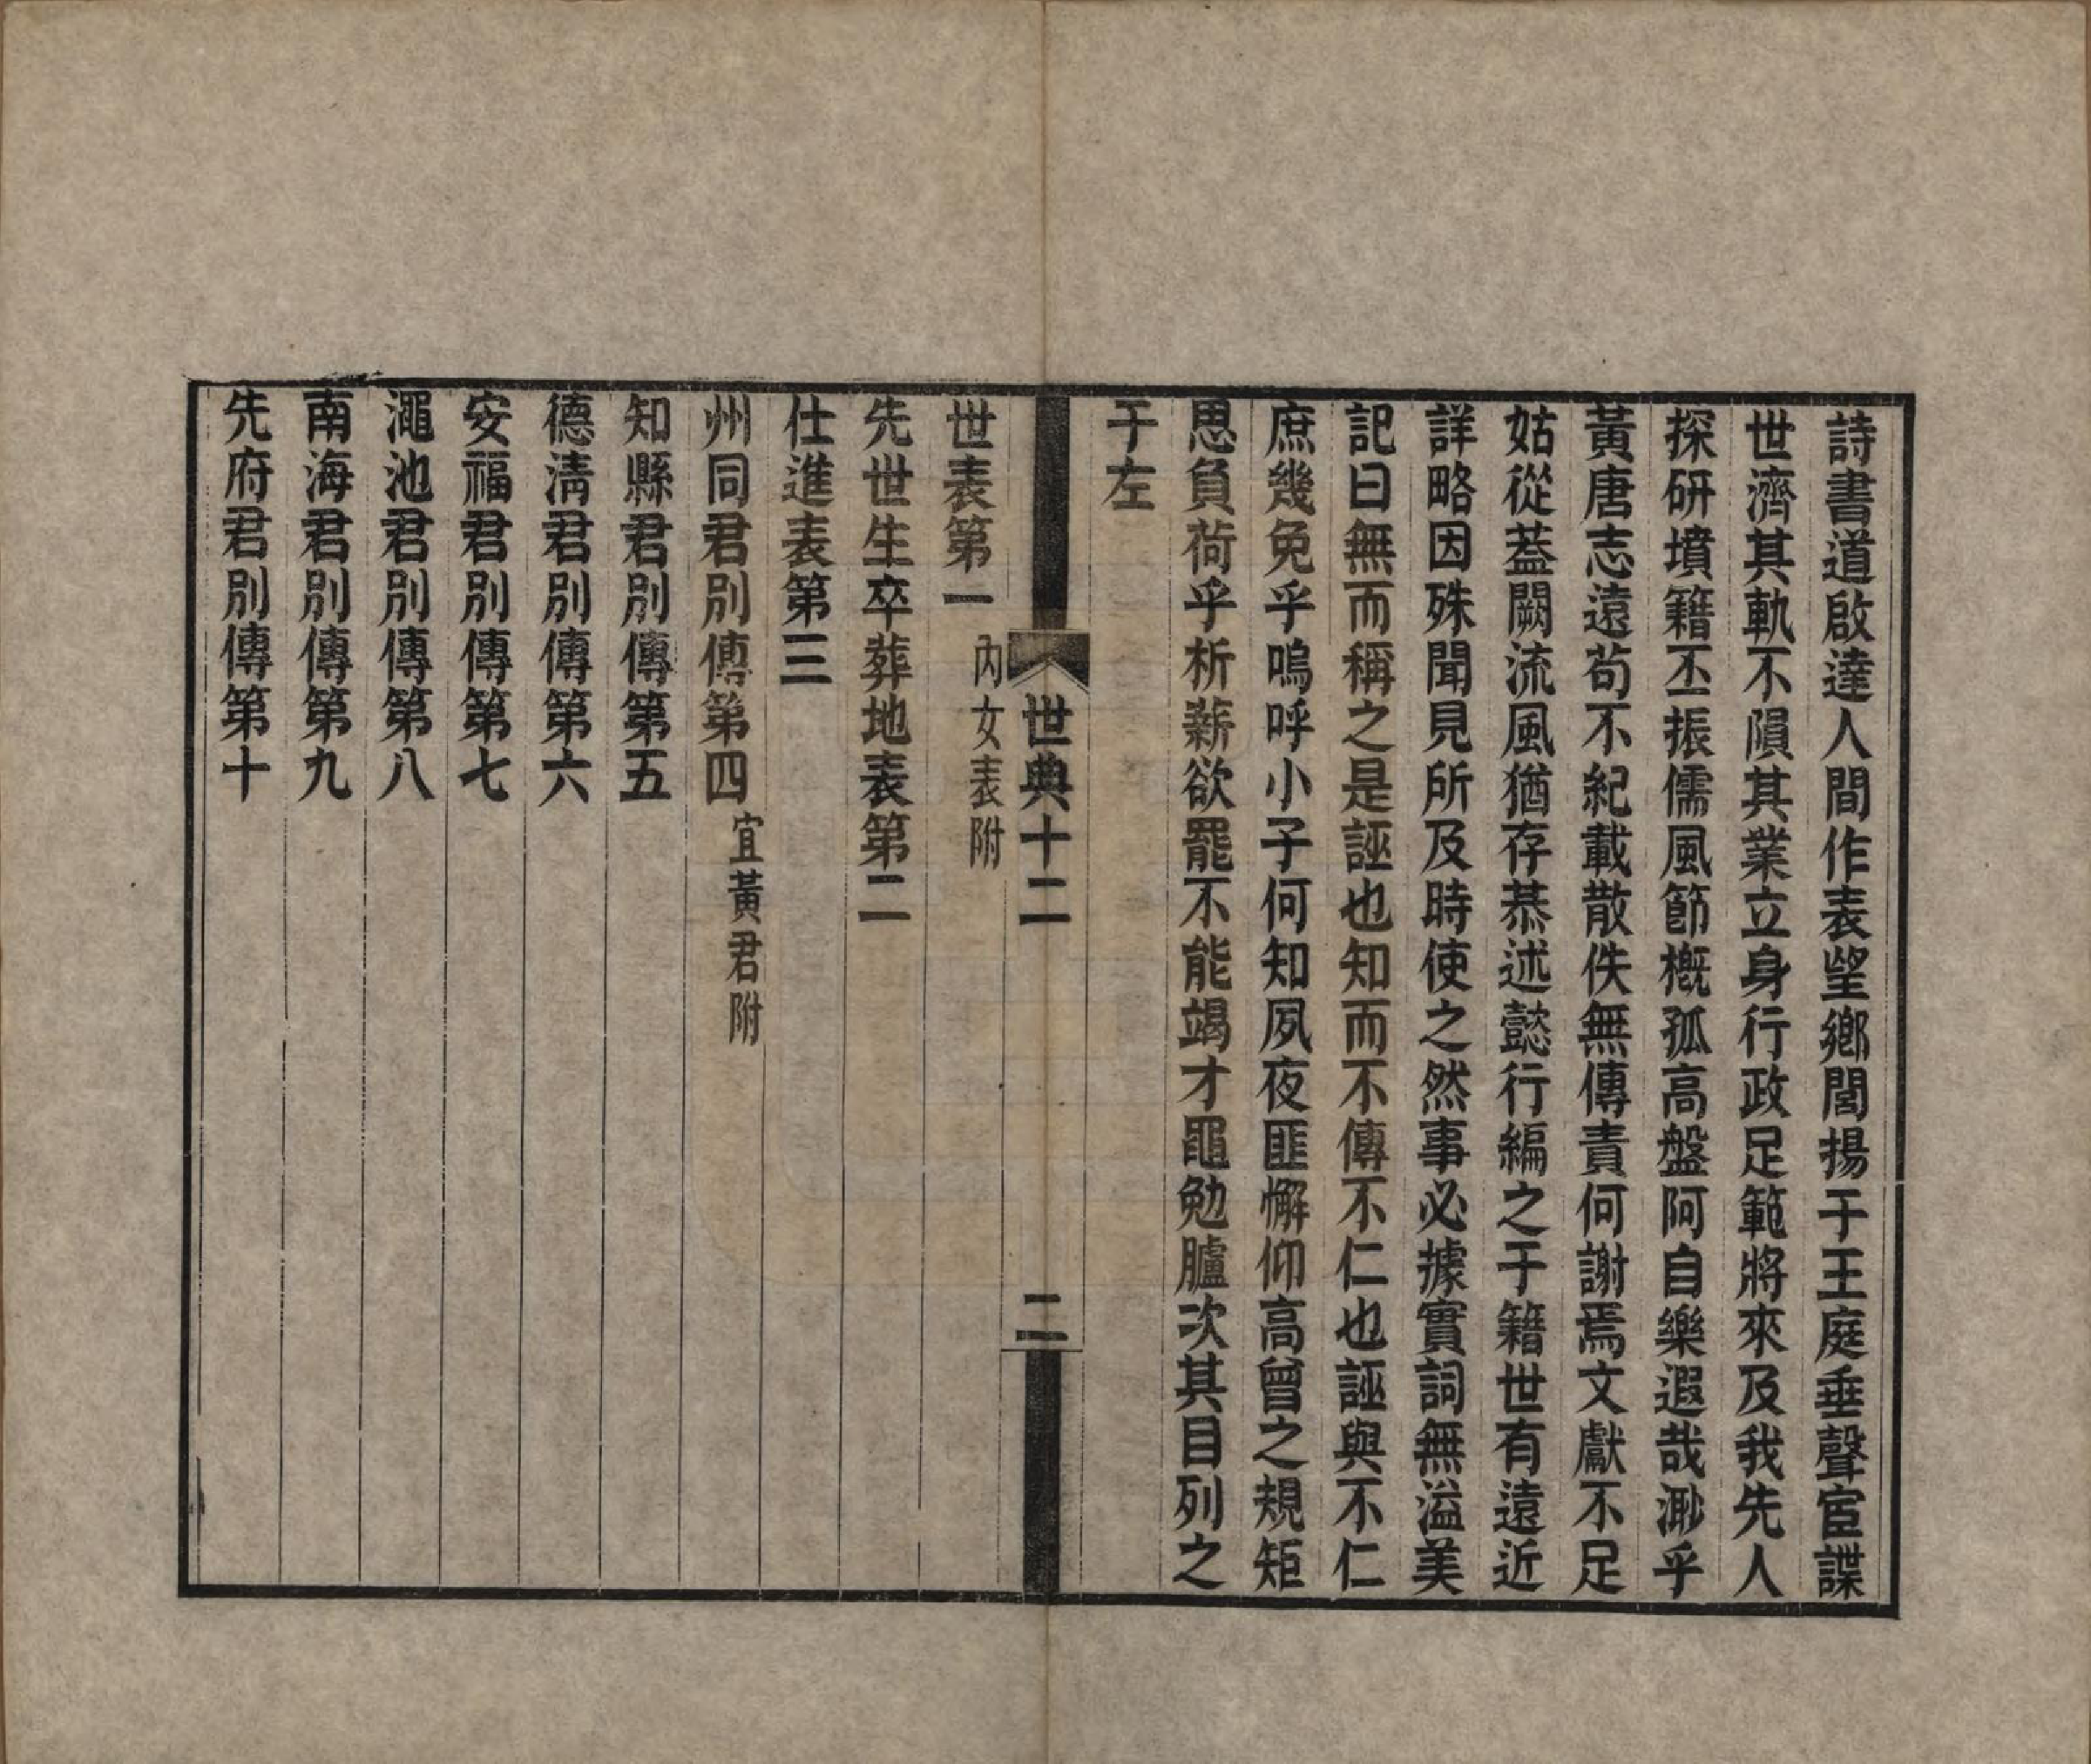 詩書道啟達人間作表望鄉閭揚于王庭垂聲宦諜
世濟其軌不隕其業立身行政足範將來及我先人
探研墳籍丕振儒風節槪孤高盤阿自樂遐哉渺乎
黃唐志遠苟不紀載散佚無傳責何謝焉文獻不足
姑從蓋闕流風猶存恭述懿行編之于籍世有遠近
詳略因殊聞見所及時使之然事必據實詞無溢美
記曰無而稱之是誣也知而不傳不仁也誣與不仁
庶幾免乎嗚呼小子何知夙夜匪懈仰高曾之規矩
思負荷乎析薪欲罷不能竭才黽勉臚次其目列之
于左
世典十二
二
世表第一 內女表附
先世生卒葬地表第二
仕進表第三
州同君別傳第四 宜黃君附
知縣君別傳第五
德淸君別傳第六
安福君別傳第七
澠池君別傳第八
南海君別傳第九
先府君別傳第十